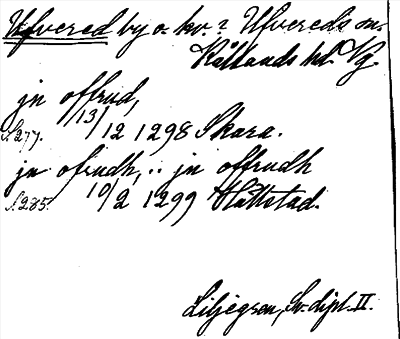 Ufvered by o. kv.? Ufvereds om.
Kållands hd. Vg.
jn offrud,
S. 277. 13/12 1298 Skara.
jn ofrudh, .. jn offrudh
S. 285. 10/2 1299 Håttstad.
Liljegren, Sv. dipl. II.